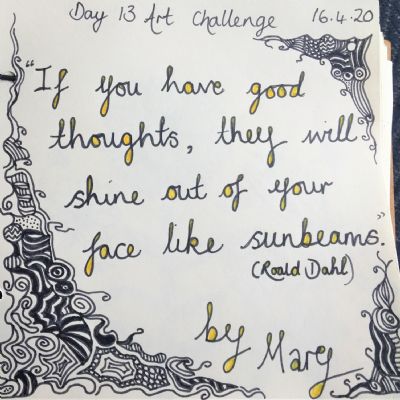 Day 13 Art Challenge 16.4.20
"If you have good
thoughts, they will
shine out of your
face like sunbeams."
(Roald Dahl)
by Mary